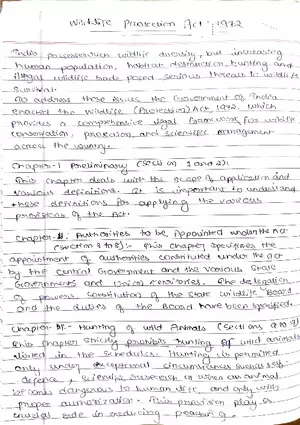 Wildlife Protection Act, 1972
India possesses rich wildlife diversity, but increasing
human population, habitat destruction, hunting and
illegal wildlife trade posed serious threats to wildlife
survival.
To address these issues the Government of India
enacted the Wildlife (Protection) Act, 1972, which
provides a comprehensive legal framework for wildlife
conservation, protection, and scientific management
across the country.
Chapter-1 Preliminary (Section 1 and 2):
This chapter deals with the scope of application and
various definitions. It is important to understand
these definitions for applying the various
provisions of the Act.
Chapter-II: Authorities to be Appointed under the Act
(Section 3 to 8):- This chapter specifies the
appointment of authorities constituted under the act
by the central Government and the various State
Governments and Union territories. The delegation
of powers, constitution of the State Wildlife Board
and the duties of the Board have been specified.
Chapter - Hunting of Wild Animals (Sections 9 to
This chapter strictly prohibits hunting of wild animals
listed in the schedules. Hunting is permitted
only under exceptional circumstances such as self-
defence, scientific research to when an animal
becomes dangerous to human life, and only with
proper authorization. This provision plays a
crucial role in reducing